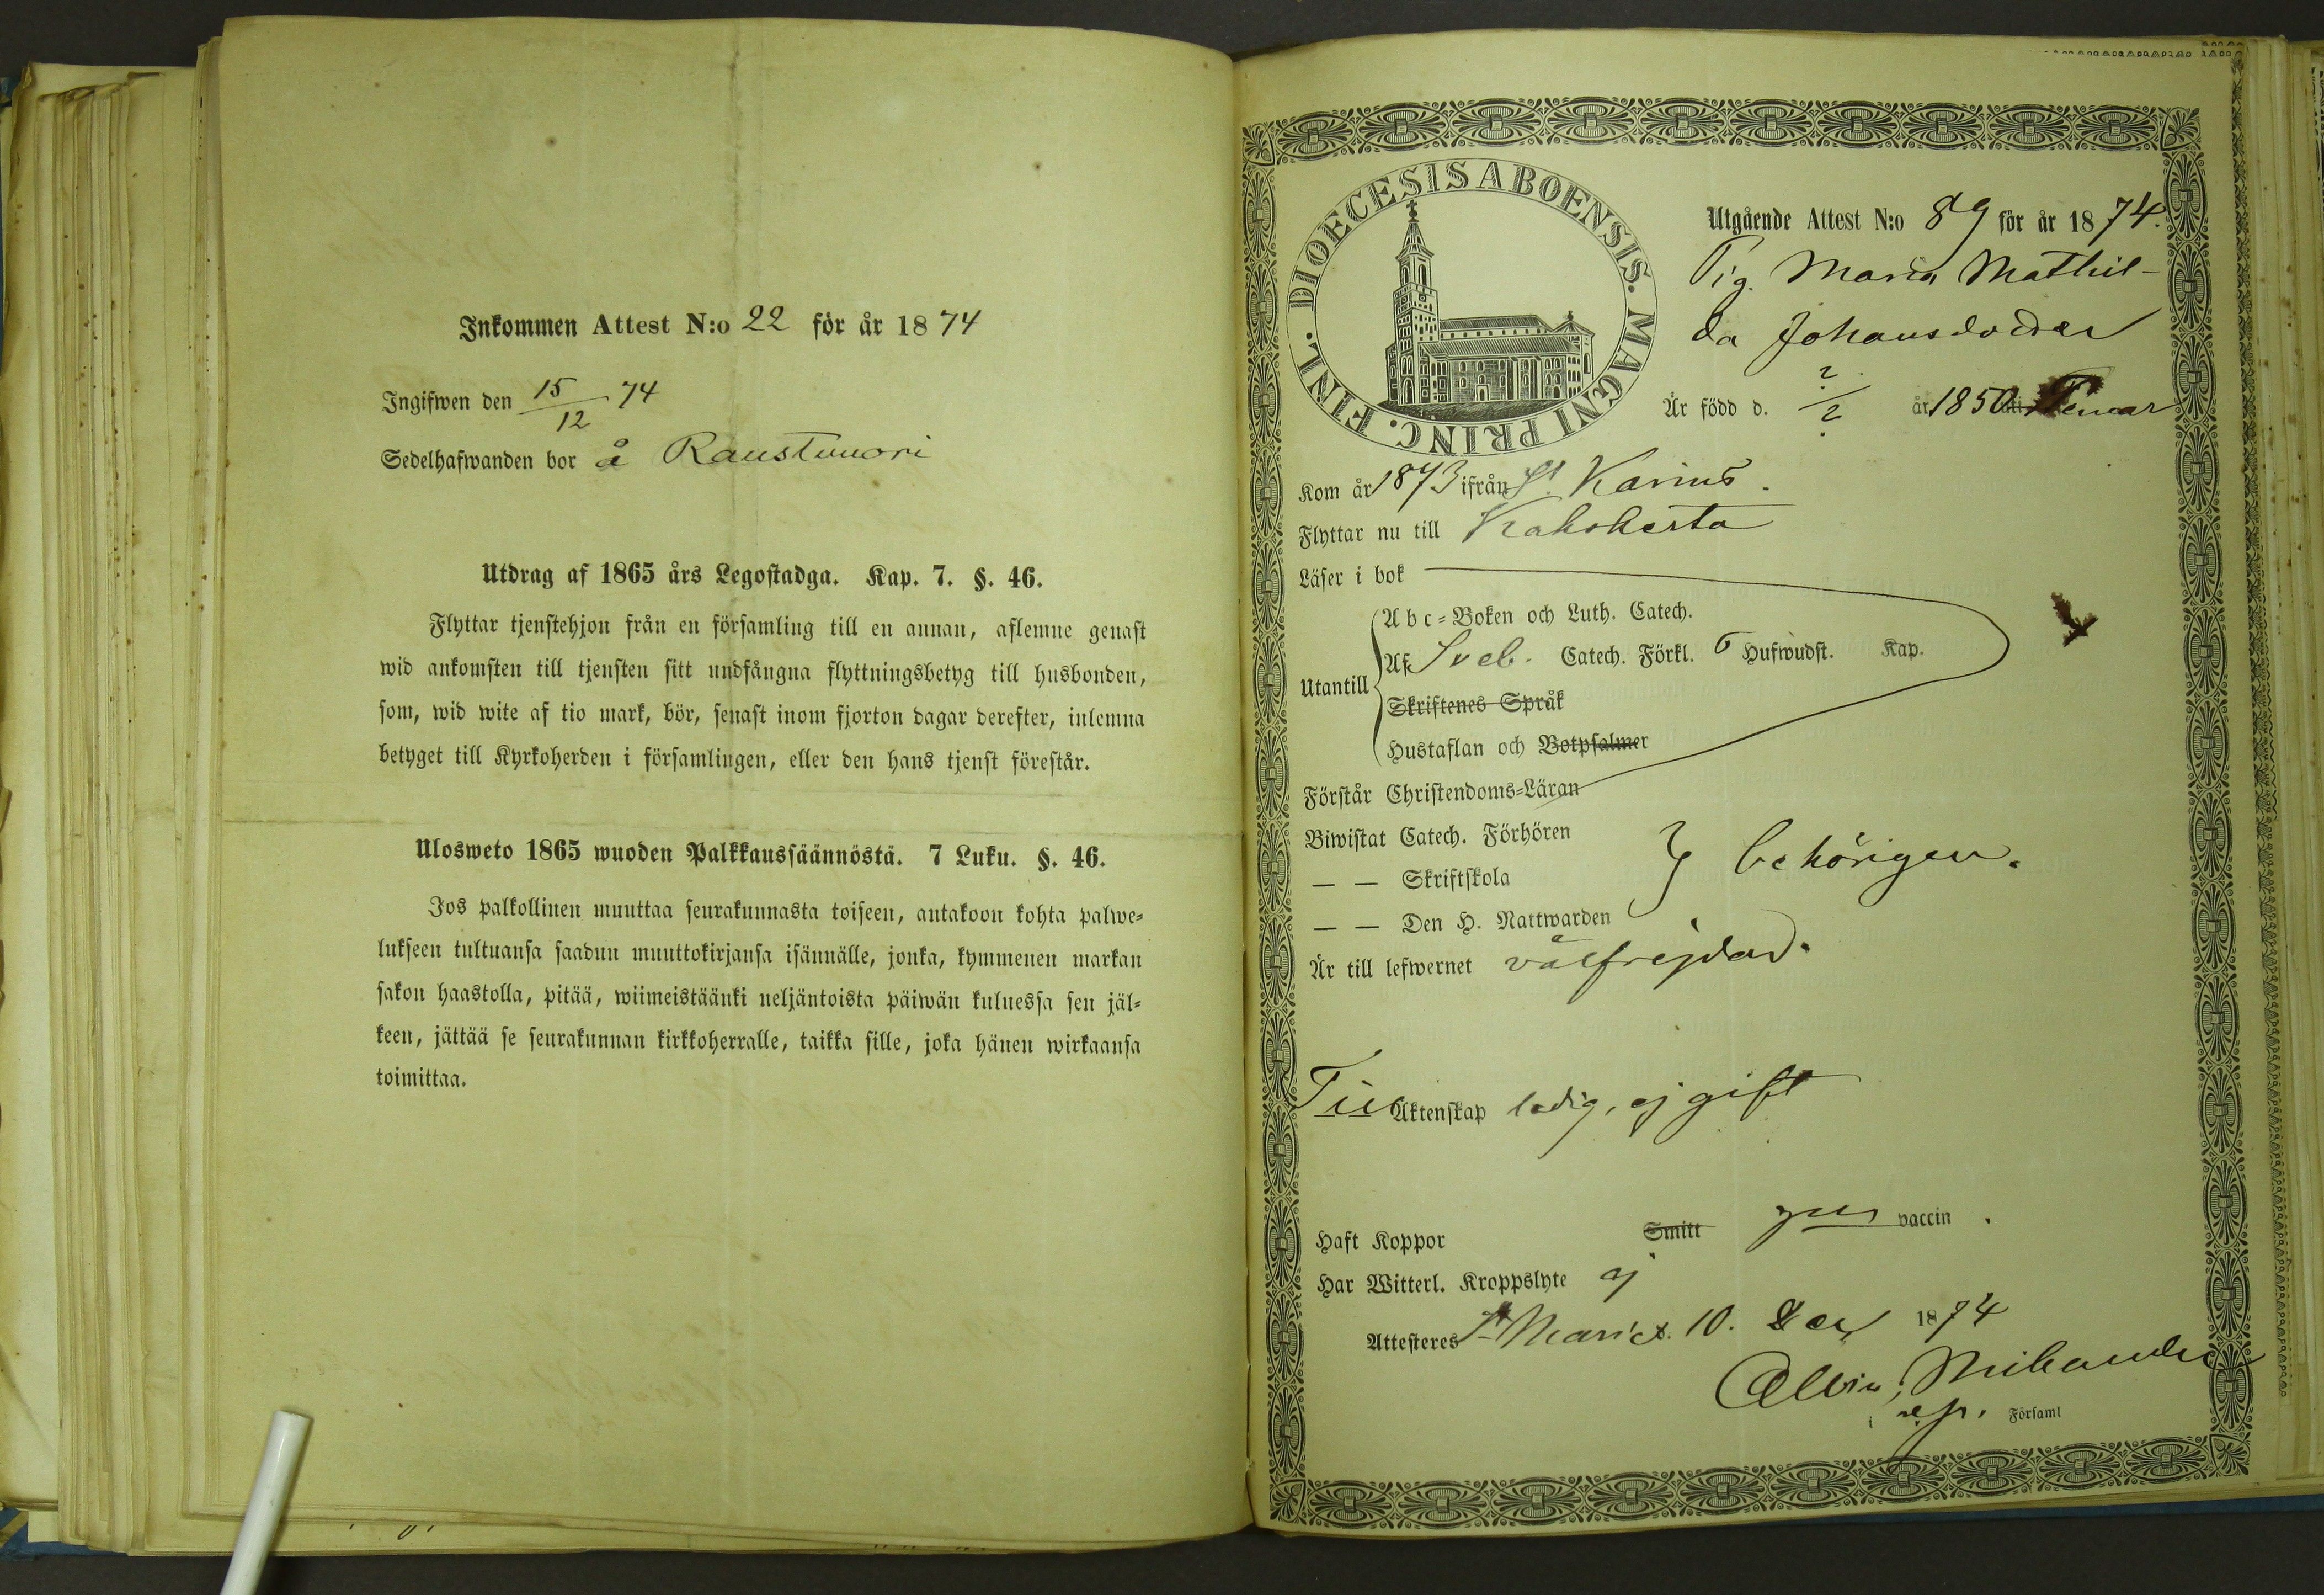 Inkommen Attest N:o 22 för år 1874
Ingifwen den 15/12 74
Sedelhafwanden bor å Raustvuori
Utdrag af 1865 års Legostadga. Kap. 7. §. 46.
Flyttar tjenstehjon från en församling till en annan, aflemne genast
wid ankomsten till tjensten sitt undfångna flyttningsbetyg till husbonden,
som, wid wite af tio mark, bör, senast inom fjorton dagar derefter, inlemna
betyget till Kyrkoherden i församlingen, eller den hans tjenst förestår.
Ulosweto 1865 wuoden Palkkaussäännöstä. 7 Luku. §. 46.
Jos palkollinen muuttaa seurakunnasta toiseen, antakoon kohta palwe-
lukseen tultuansa saadun muuttokirjansa isännälle, jonka, kymmenen markan
sakon haastolla, pitää, wiimeistäänki neljäntoista päiwän kuluessa sen jäl-
keen, jättää se seurakunnan kirkkoherralle, taikka sille, joka hänen wirkaansa
toimittaa.
DIOECESIS ABOENSIS. MAGNI PRINC. FINL.
Utgående Attest N:o 89 för år 1874.
Pig. Maria Mathil-
da Johansdotter
Är född d. ?/? år 1850
Kom år 1873 ifrån St Karins.
Flyttar nu till Kakskerta
Läser i bok
Utantill
Abc-Boken och Luth. Catech.
Af Sveb. Catech. Förkl. 6 Hufwudst. Kap.
Skriftenes Språk
Hustaflan och Botpsalmer
Förstår Christendoms-Läran
Biwistat Catech. Förhören
— — Skriftskola
behörigen.
— — Den H. Nattwarden
Är till lefwernet välfrejdad.
Till Äktenskap ledig, ej gift
Haft Koppor Smitt gm vaccin.
Har Witterl. Kroppslyte ej
Attesteres St Mariæ. 10. Dec 1874
Albin
i Församl